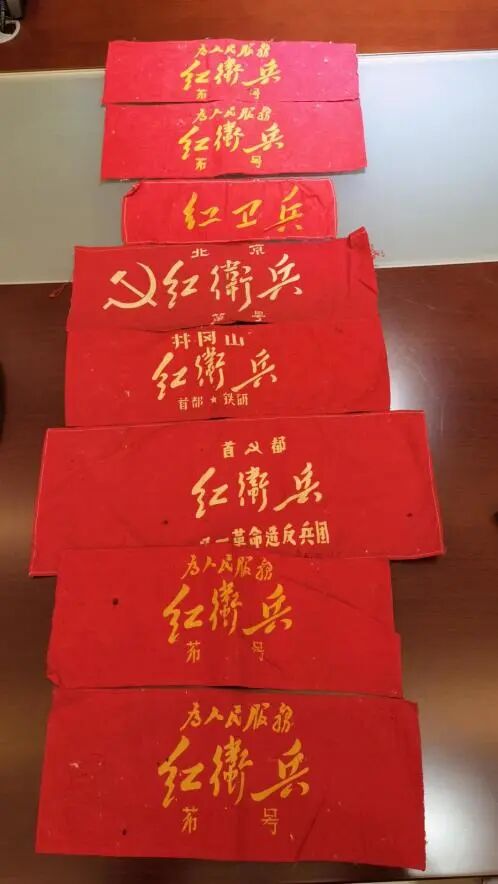 为人民服务
红衛兵
第 号
为人民服务
红衛兵
第 号
红卫兵
北京
红衛兵
第 号
井冈山
红衛兵
首都★铁研
首都
红衛兵
一革命造反兵团
为人民服务
红衛兵
第 号
为人民服务
红衛兵
第 号